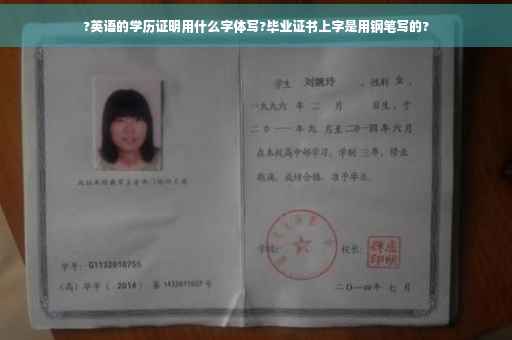 ?英语的学历证明用什么字体写?毕业证书上字是用钢笔写的?
学生 刘婉玲 ,性别 女 ,
一九九六 年 二 月 日生,于
二〇一一年九 月至二〇一四年六月
在本校高中部学习,学制 三年,修业
期满,成绩合格,准予毕业。
学校: 校长:
学号: G1132010755
(高)毕字( 2014 )第 1432011027 号
二〇一四年 七 月